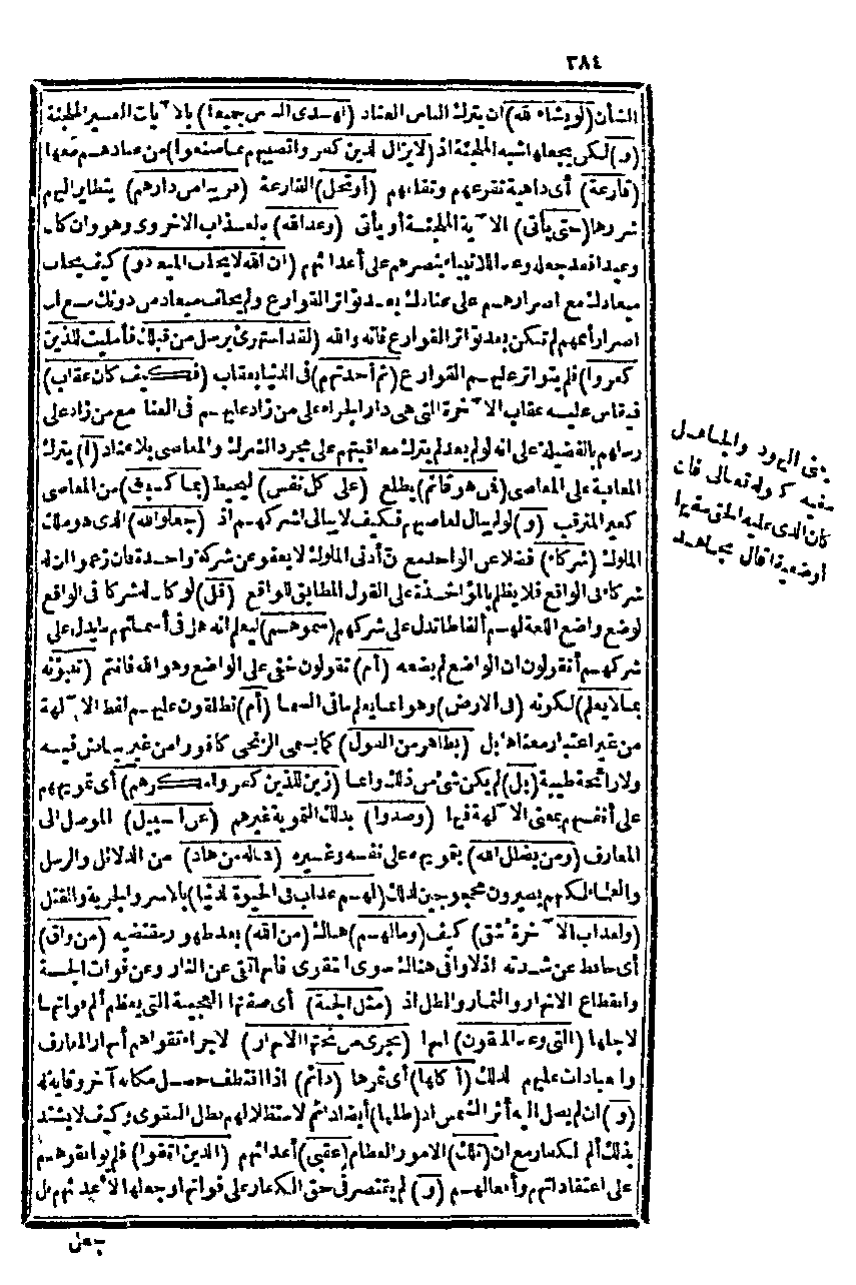 ٣٨٤
الشأن (لو يشاء الله) ان يترك الناس العناد (لهدى الناس جميعا) بالآيات الغير الملجئة
(و) لكن يجعلها اشبه الملجئة اذ (لا يزال الذين كفروا تصيبهم بما صنعوا) من عنادهم معها
(قارعة) أى داهية تقرعهم وتقلعهم (أو تحل) القارعة (قريبا من دارهم) يتطاير اليهم
شررها (حتى يأتى) الآية الملجئة أو يأتى (وعد الله) بالعذاب الاخروى وهو وان كان
وعيدا فقد جعله وعد الانبياء بنصرهم على أعدائهم (ان الله لا يخلف الميعاد) كيف يخلف
ميعادك مع اصرارهم على عنادك بعد تواتر القوارع ولم يخلف ميعاد من دونك مع ان
اصرار أممهم لم تكن بعد تواتر القوارع فانه والله (لقد استهزئ برسل من قبلك فأمليت للذين
كفروا) فلم يتواتر عليهم القوارع (ثم أخذتهم) فى الدنيا بعقاب (فكيف كان عقاب)
فيقاس عليه عقاب الآخرة التى هى دار الجزاء على من زاد عليهم فى العناد مع من زاد على
رسلهم بالفضيلة على انه لو لم يعد لم يترك معاقبتهم على مجرد الشرك والمعاصى بلا عناد (أ) يترك
المعاقبة على المعاصى (فمن هو قائم) يطلع (على كل نفس) ليحيط (بما كسبت) من المعاصى
كغير المترقب (و) لو لم يبال لمعاصيهم فكيف لا يبالى لشركهم اذ (جعلوا لله) الذى هو ملك
الملوك (شركاء) فضلا عن الواحد مع أن أدنى الملوك لا يعفو عن شركة واحدة فان زعموا ان له
شركاء فى الواقع فلا يظلم بالمؤاخذة على القول المطابق للواقع (قل) لو كان له شركا فى الواقع
لوضع واضع اللغة لهم ألفاظا تدل على شركهم (سموهم) ليعلم انه هل فى أسمائهم ما يدل على
شركهم أتقولون ان الواضع لم يضعه (أم) تقولون خفى على الواضع وهو الله فانتم (تنبؤنه
بما لا يعلم) لكونه (فى الارض) وهو انما يعلم ما فى السماء (أم) تطلقون عليهم لفظ الآلهة
من غير اعتبار معناها بل (بظاهر من القول) كما يسمى الزنجى كافورا من غير بياض فيه
ولا رائحة طيبة (بل) لم يكن شئ من ذلك وانما (زين للذين كفروا مكرهم) أى تمويههم
على أنفسهم بمعنى الآلهة فيها (وصدوا) بذلك التمويه غيرهم (عن السبيل) الموصل الى
المعارف (ومن يضلل الله) بتمويهه على نفسه وغيره (فماله من هاد) من الدلائل والرسل
والعلماء لكنهم يصيرون محجوجين لذلك (لهم عذاب فى الحيوة الدنيا) بالاسر والجزية والقتل
(ولعذاب الآخرة أشق) كيف (ومالهم) هنالك (من الله) بعد ظهوره بمقتضيه (من واق)
أى حافظ عن شدته اذ لا واقى هنالك سوى التقوى فانها تقى عن النار وعن فوات الجنة
وانقطاع الانهار والثمار والظل اذ (مثل الجنة) أى صفتها العجيبة التى يعظم ألم فواتها
لاجلها (التى وعد المتقون) انها (تجرى من تحتها الانهار) لاجراء تقواهم أنهار المعارف
والعبادات عليهم لذلك (أكلها) أى ثمرها (دائم) اذا اقتطف حصل مكانه آخر وقاية له
(و) ان لم يصل اليه أثر الشمس اذ (ظلها) أيضا دائم لاستظلالهم بظل التقوى وكيف لا يشتد
بذلك ألم الكفار مع ان (تلك) الامور العظام (عقبى) أعدائهم (الذين اتقوا) فلم يوافقوهم
على اعتقاداتهم وأفعالهم (و) لم يقتصر فى حق الكفار على فواتها وجعلها لأعدائهم بل
يجعل
يعنى اليهود والجاهل
سفيه كقوله تعالى فان
كان الذى عليه الحق سفيها
أو ضعيفا قال مجاهد